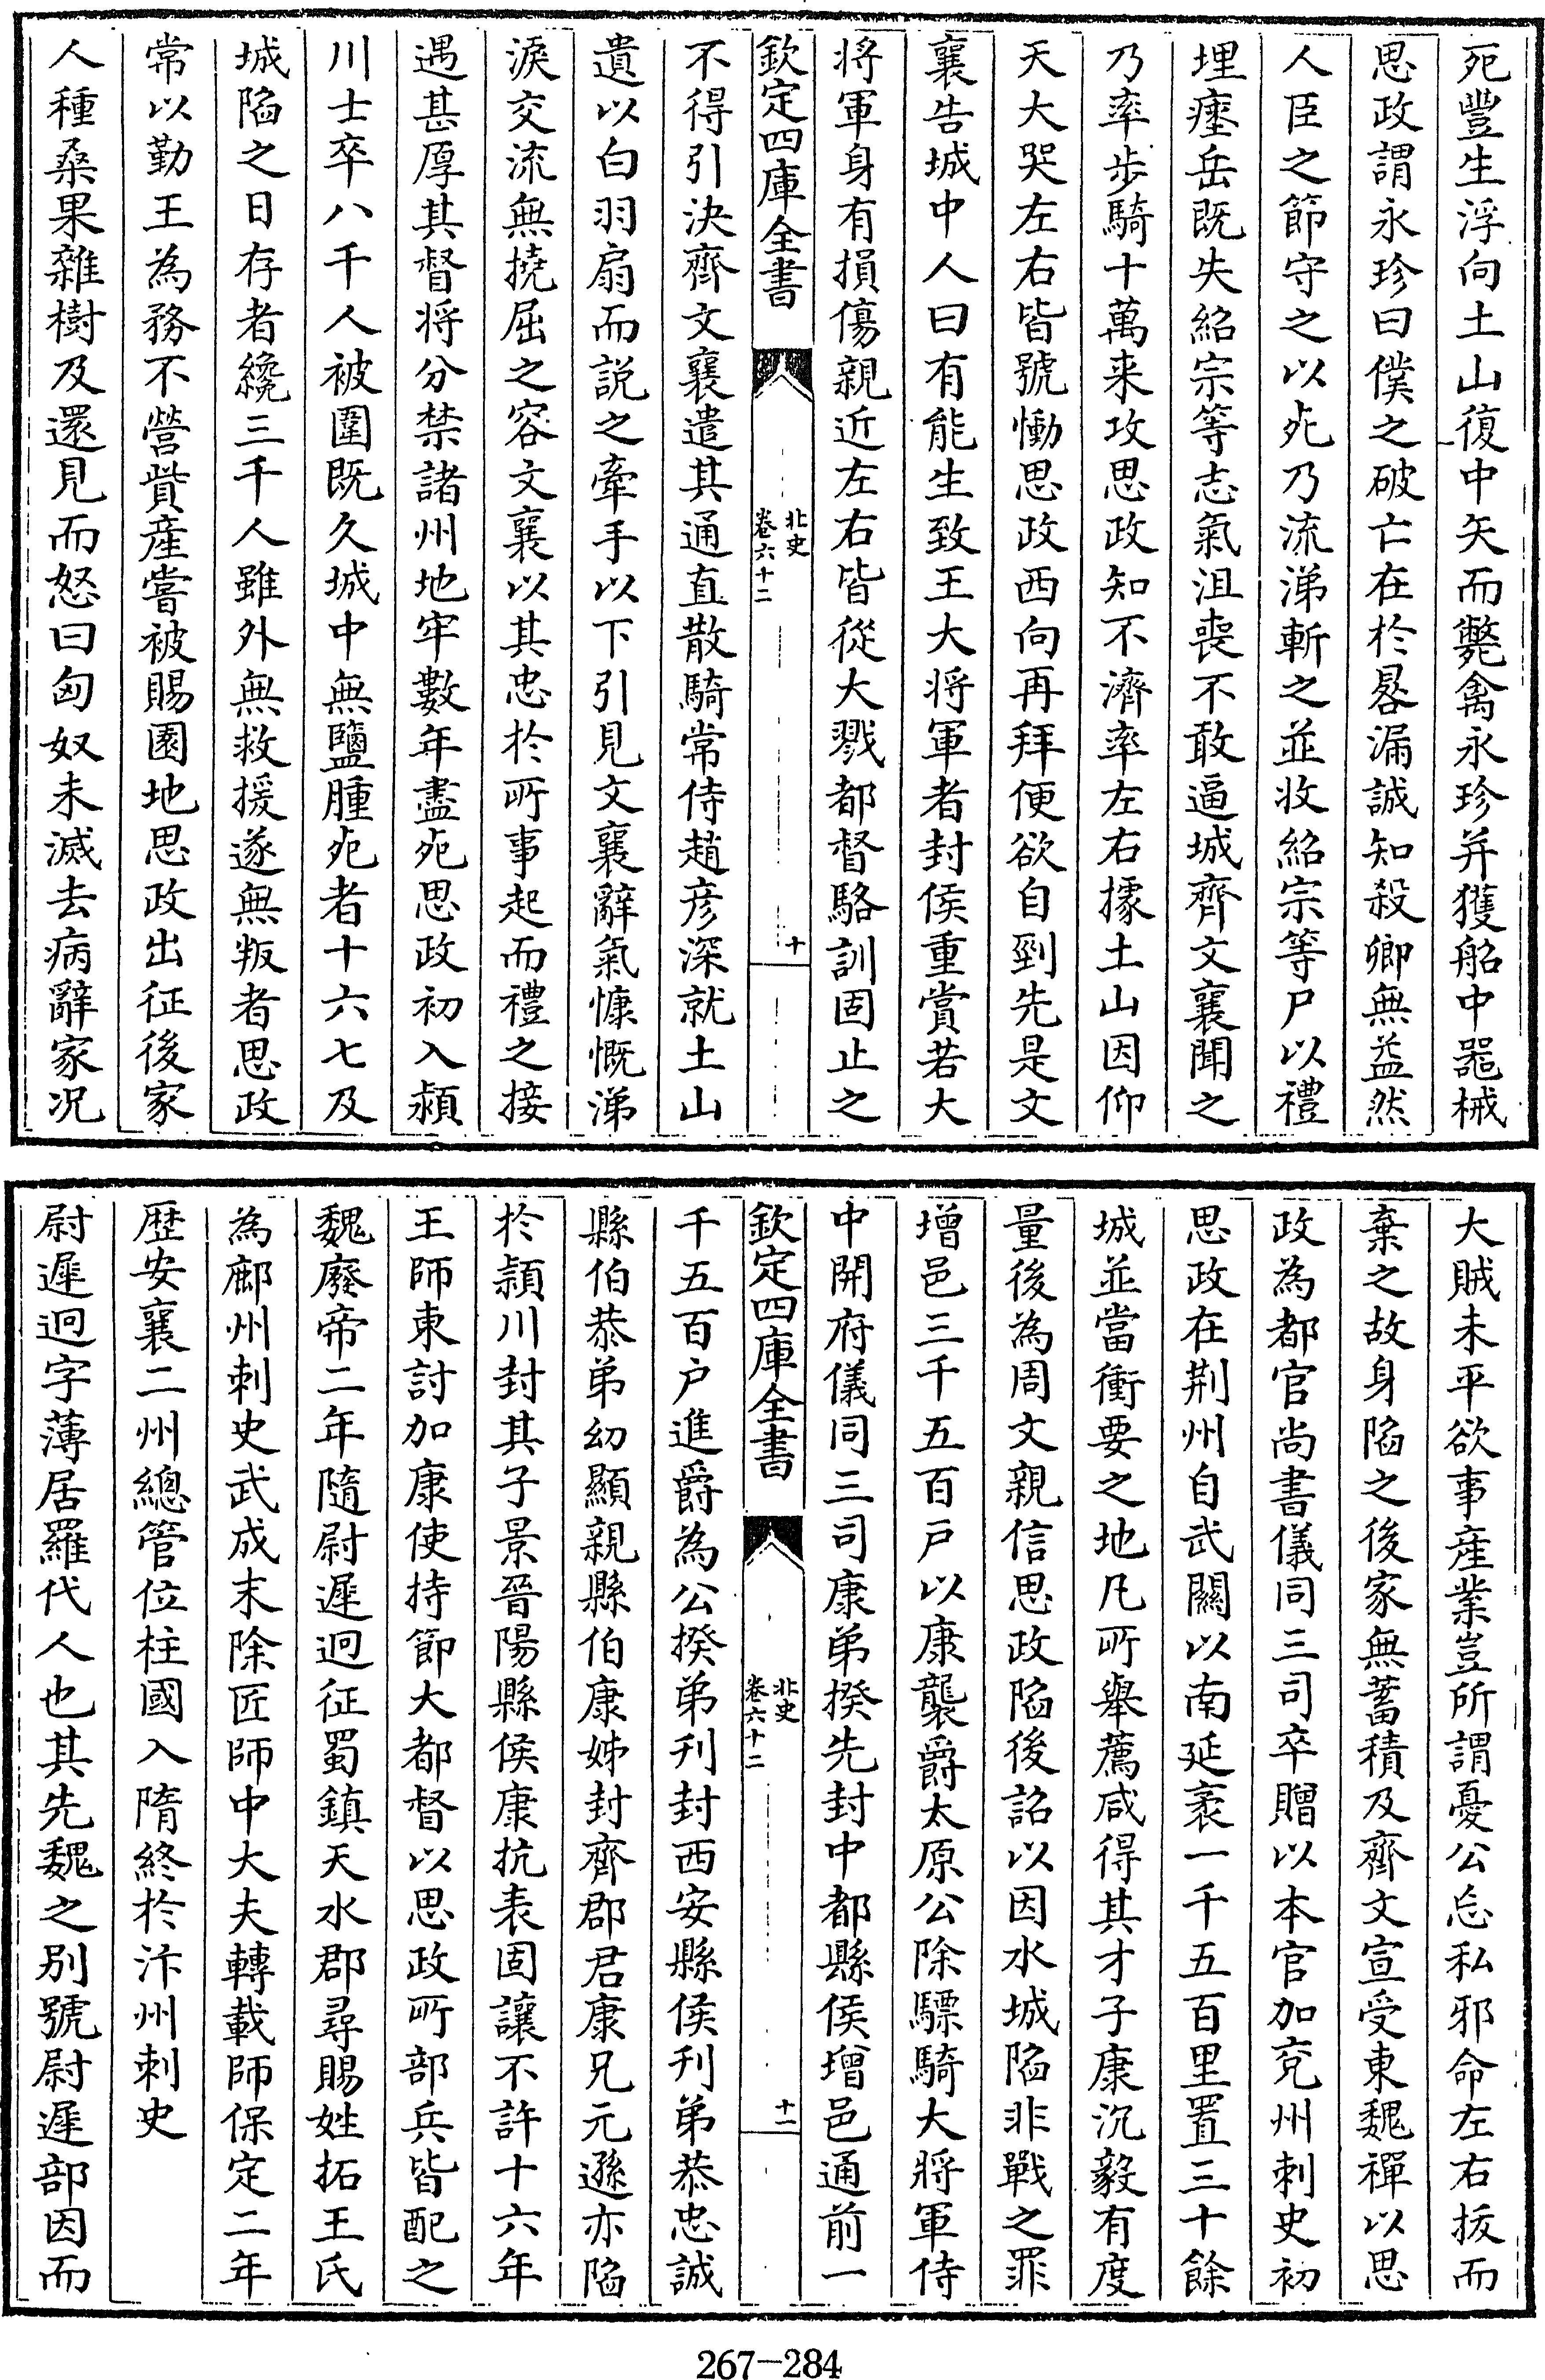 死豐生浮向土山復中矢而斃禽永珍并獲船中噐械
思政謂永珍曰僕之破亡在於晷漏誠知殺卿無益然
人臣之節守之以死乃流涕斬之並收紹宗等尸以禮
埋瘞岳既失紹宗等志氣沮喪不敢逼城齊文襄聞之
乃率步騎十萬来攻思政知不濟率左右據土山因仰
天大哭左右皆號慟思政西向再拜便欲自剄先是文
襄告城中人曰有能生致王大将軍者封侯重賞若大
将軍身有損傷親近左右皆從大戮都督駱訓固止之
欽定四庫全書
北史
卷六十二
十
不得引決齊文襄遣其通直散騎常侍趙彦深就土山
遺以白羽扇而説之牽手以下引見文襄辭氣慷慨涕
淚交流無撓屈之容文襄以其忠於所事起而禮之接
遇甚厚其督将分禁諸州地牢數年盡死思政初入潁
川士卒八千人被圍既久城中無鹽腫死者十六七及
城陷之日存者纔三千人雖外無救援遂無叛者思政
常以勤王為務不營貲産嘗被賜園地思政出征後家
人種桑果雜樹及還見而怒曰匈奴未滅去病辭家况
大賊未平欲事産業豈所謂憂公忘私邪命左右拔而
棄之故身陷之後家無蓄積及齊文宣受東魏禪以思
政為都官尚書儀同三司卒贈以本官加兖州刺史初
思政在荆州自武關以南延袤一千五百里置三十餘
城並當衝要之地凡所舉薦咸得其才子康沉毅有度
量後為周文親信思政陷後詔以因水城陷非戰之罪
增邑三千五百戸以康襲爵太原公除驃騎大將軍侍
中開府儀同三司康弟揆先封中都縣侯增邑通前一
欽定四庫全書
北史
卷六十二
十一
千五百户進爵為公揆弟刋封西安縣侯刋弟恭忠誠
縣伯恭弟幼顯親縣伯康姊封齊郡君康兄元遜亦陷
於潁川封其子景晉陽縣侯康抗表固讓不許十六年
王師東討加康使持節大都督以思政所部兵皆配之
魏廢帝二年隨尉遲迥征蜀鎮天水郡尋賜姓拓王氏
為鄜州刺史武成末除匠師中大夫轉載師保定二年
歴安襄二州總管位柱國入隋終於汴州刺史
尉遲迥字薄居羅代人也其先魏之别號尉遲部因而
267-284